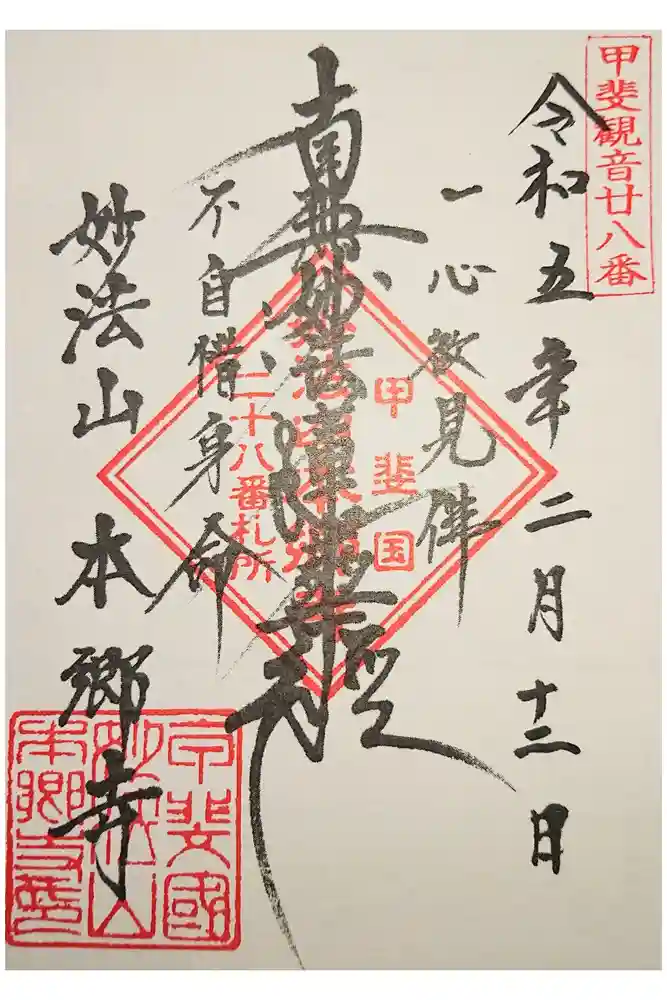 甲斐観音廿八番
令和五年二月十二日
一心欲見佛
南無妙法蓮華経
不自惜身命
妙法山 本郷寺
甲斐国
妙法山本郷寺
二十八番札所
甲斐國
妙法山
本郷寺